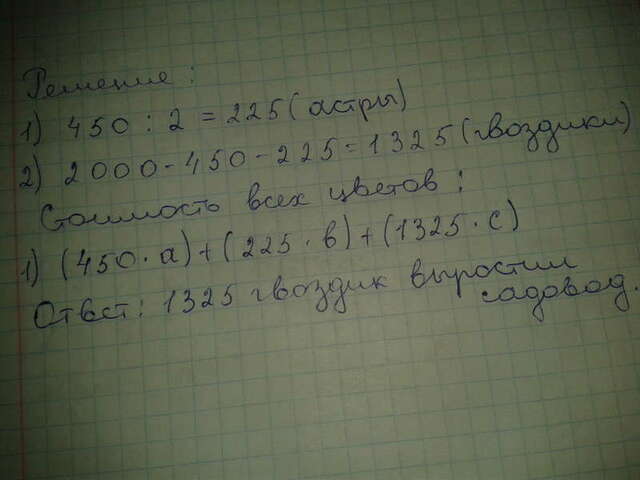 Решение:
1) 450 : 2 = 225 (астры)
2) 2000 - 450 - 225 = 1325 (гвоздики)
Стоимость всех цветов:
1) (450 · а) + (225 · в) + (1325 · с)
Ответ: 1325 гвоздик выростил
садовод.